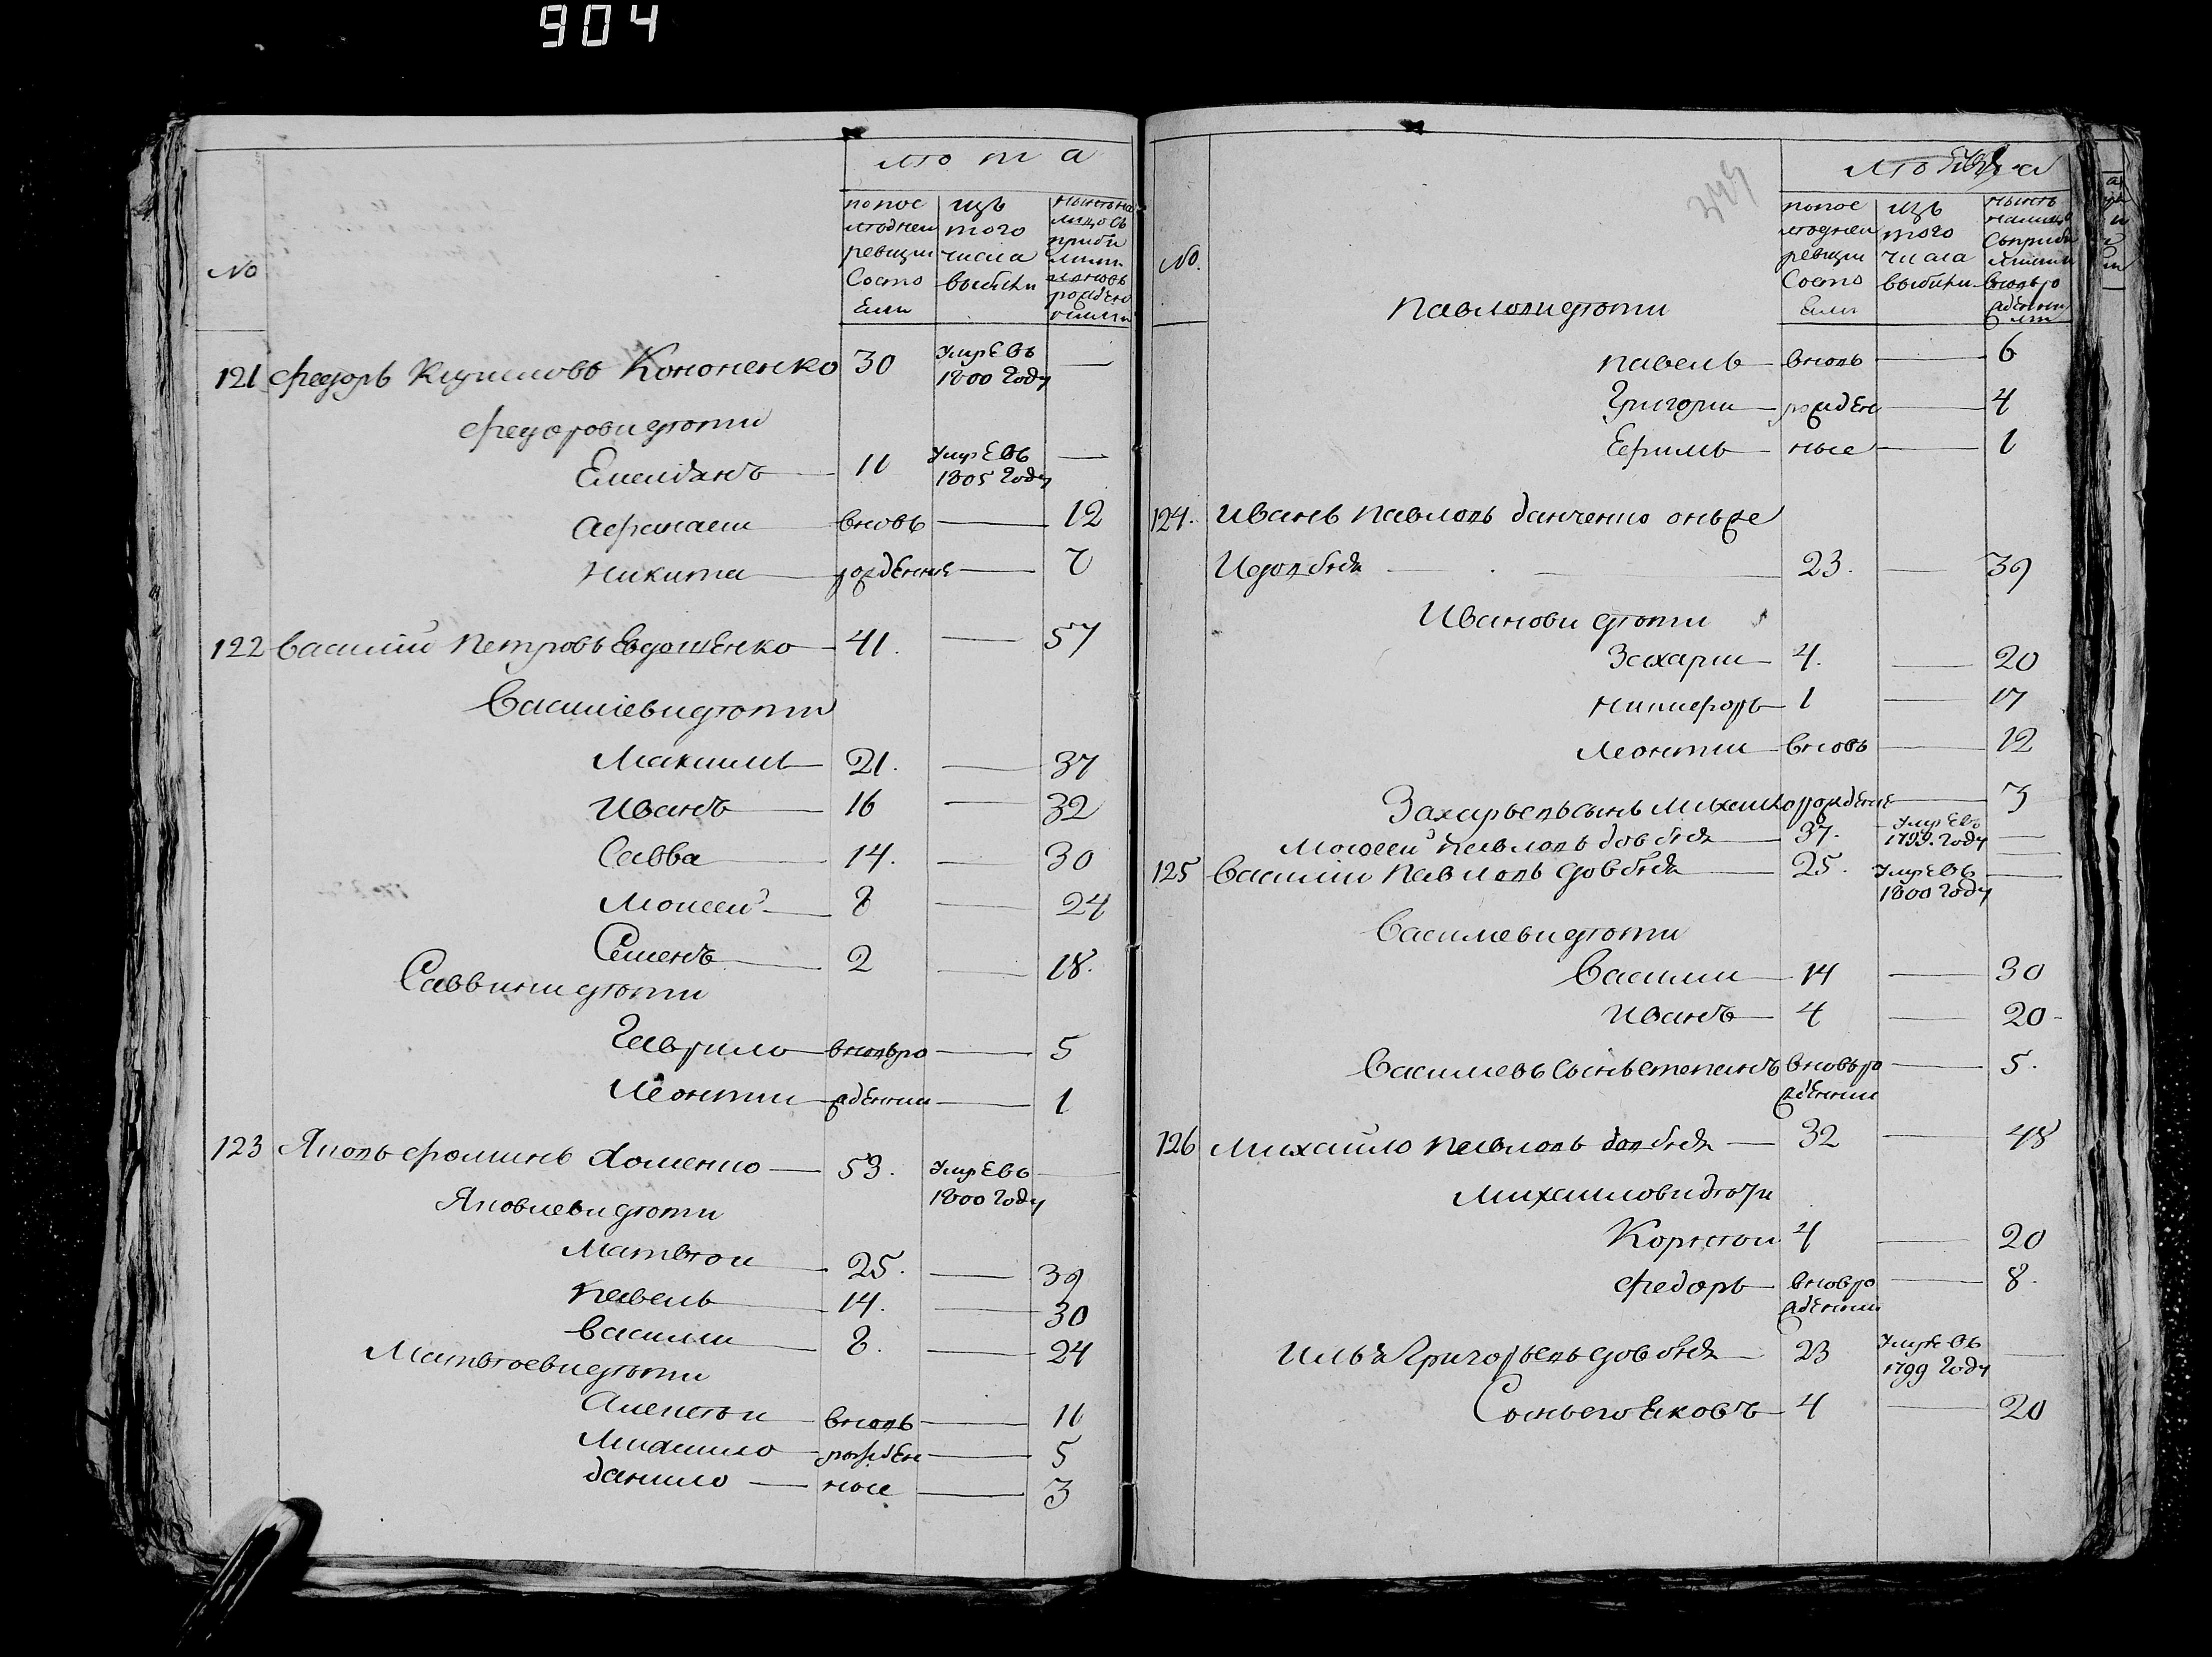 904
лѣта
No
по пос
лѣдней
ревизии
состо
яли
изъ
того
числа
выбыли
ныне на
лицо съ
прибы
лыми
и вновь
рожден
ными
121 Федоръ Кириловъ Кононенко 30 Умре въ 1800 году —
Федорови дѣти
Емельянъ — 11 Умре въ 1805 году —
Афанасии вновь — 12
Никита рожденные — 7
122 Василий Петровъ Евдошенко — 41. — 57
Василіеви дѣти
Максимъ — 21. — 37
Иванъ — 16 — 32
Савва — 14. — 30
Моисей — 8 — 24
Семенъ — 2 — 18.
Саввини дѣти
Гаврило — вновь ро — 5
Леонтии — жденнии — 1
123 Яковъ Фоминъ Хоменко — 53. Умре въ 1800 году —
Яковлеви дѣти
Матвѣи — 25. — 39
Павелъ — 14. — 30
Василии — 8. — 24
Матвѣеви дѣти
Алексѣи — вновь — 11
Михаило — рожден — 5
Данило — ные — 3
лѣта
344
No.
по пос
лѣдней
ревизии
состо
яли
изъ
того
числа
выбыли
нынѣ
налицо
съ прибы
лыми
вновь ро
жденны
ми
Павлови дѣти
Павелъ — вновь — 6
Григории — рожден — 4
Ефимъ — ные — 1
124. Иванъ Павловъ Данченко онъ же
И Довбня — 23. — 39
Иванови дѣти
Захарии — 4. — 20
Никифоръ — 1 — 17
Леонтии — вновь — 12
Захарьевъ сынъ Михаило рожденые — 3
Моисей Павловъ Довбня — 37. — Умре въ 1799. году —
125 Василии Павловъ Довбня — 25. Умре въ 1800 году —
Василиеви дѣти
Василии — 14 — 30
Иванъ — 4 — 20
Василиевъ сынъ Степанъ вновь ро — 5.
жденнии
126 Михайло Павловъ Довбня — 32 — 48
Михаилови дѣти
Корнѣи 4 — 20
Федоръ — вновь ро — 8.
жденнии
Илья Григорьевъ Довбня — 23 Умре въ 1799 году —
Сынъ его Яковъ — 4 — 20